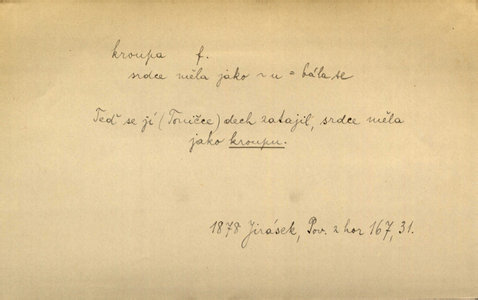 kroupa f.
srdce měla jako ~u = bála se
Teď se jí (Toničce) dech zatajil, srdce měla
jako kroupu.
1878 Jirásek, Pov. z hor 167, 31.